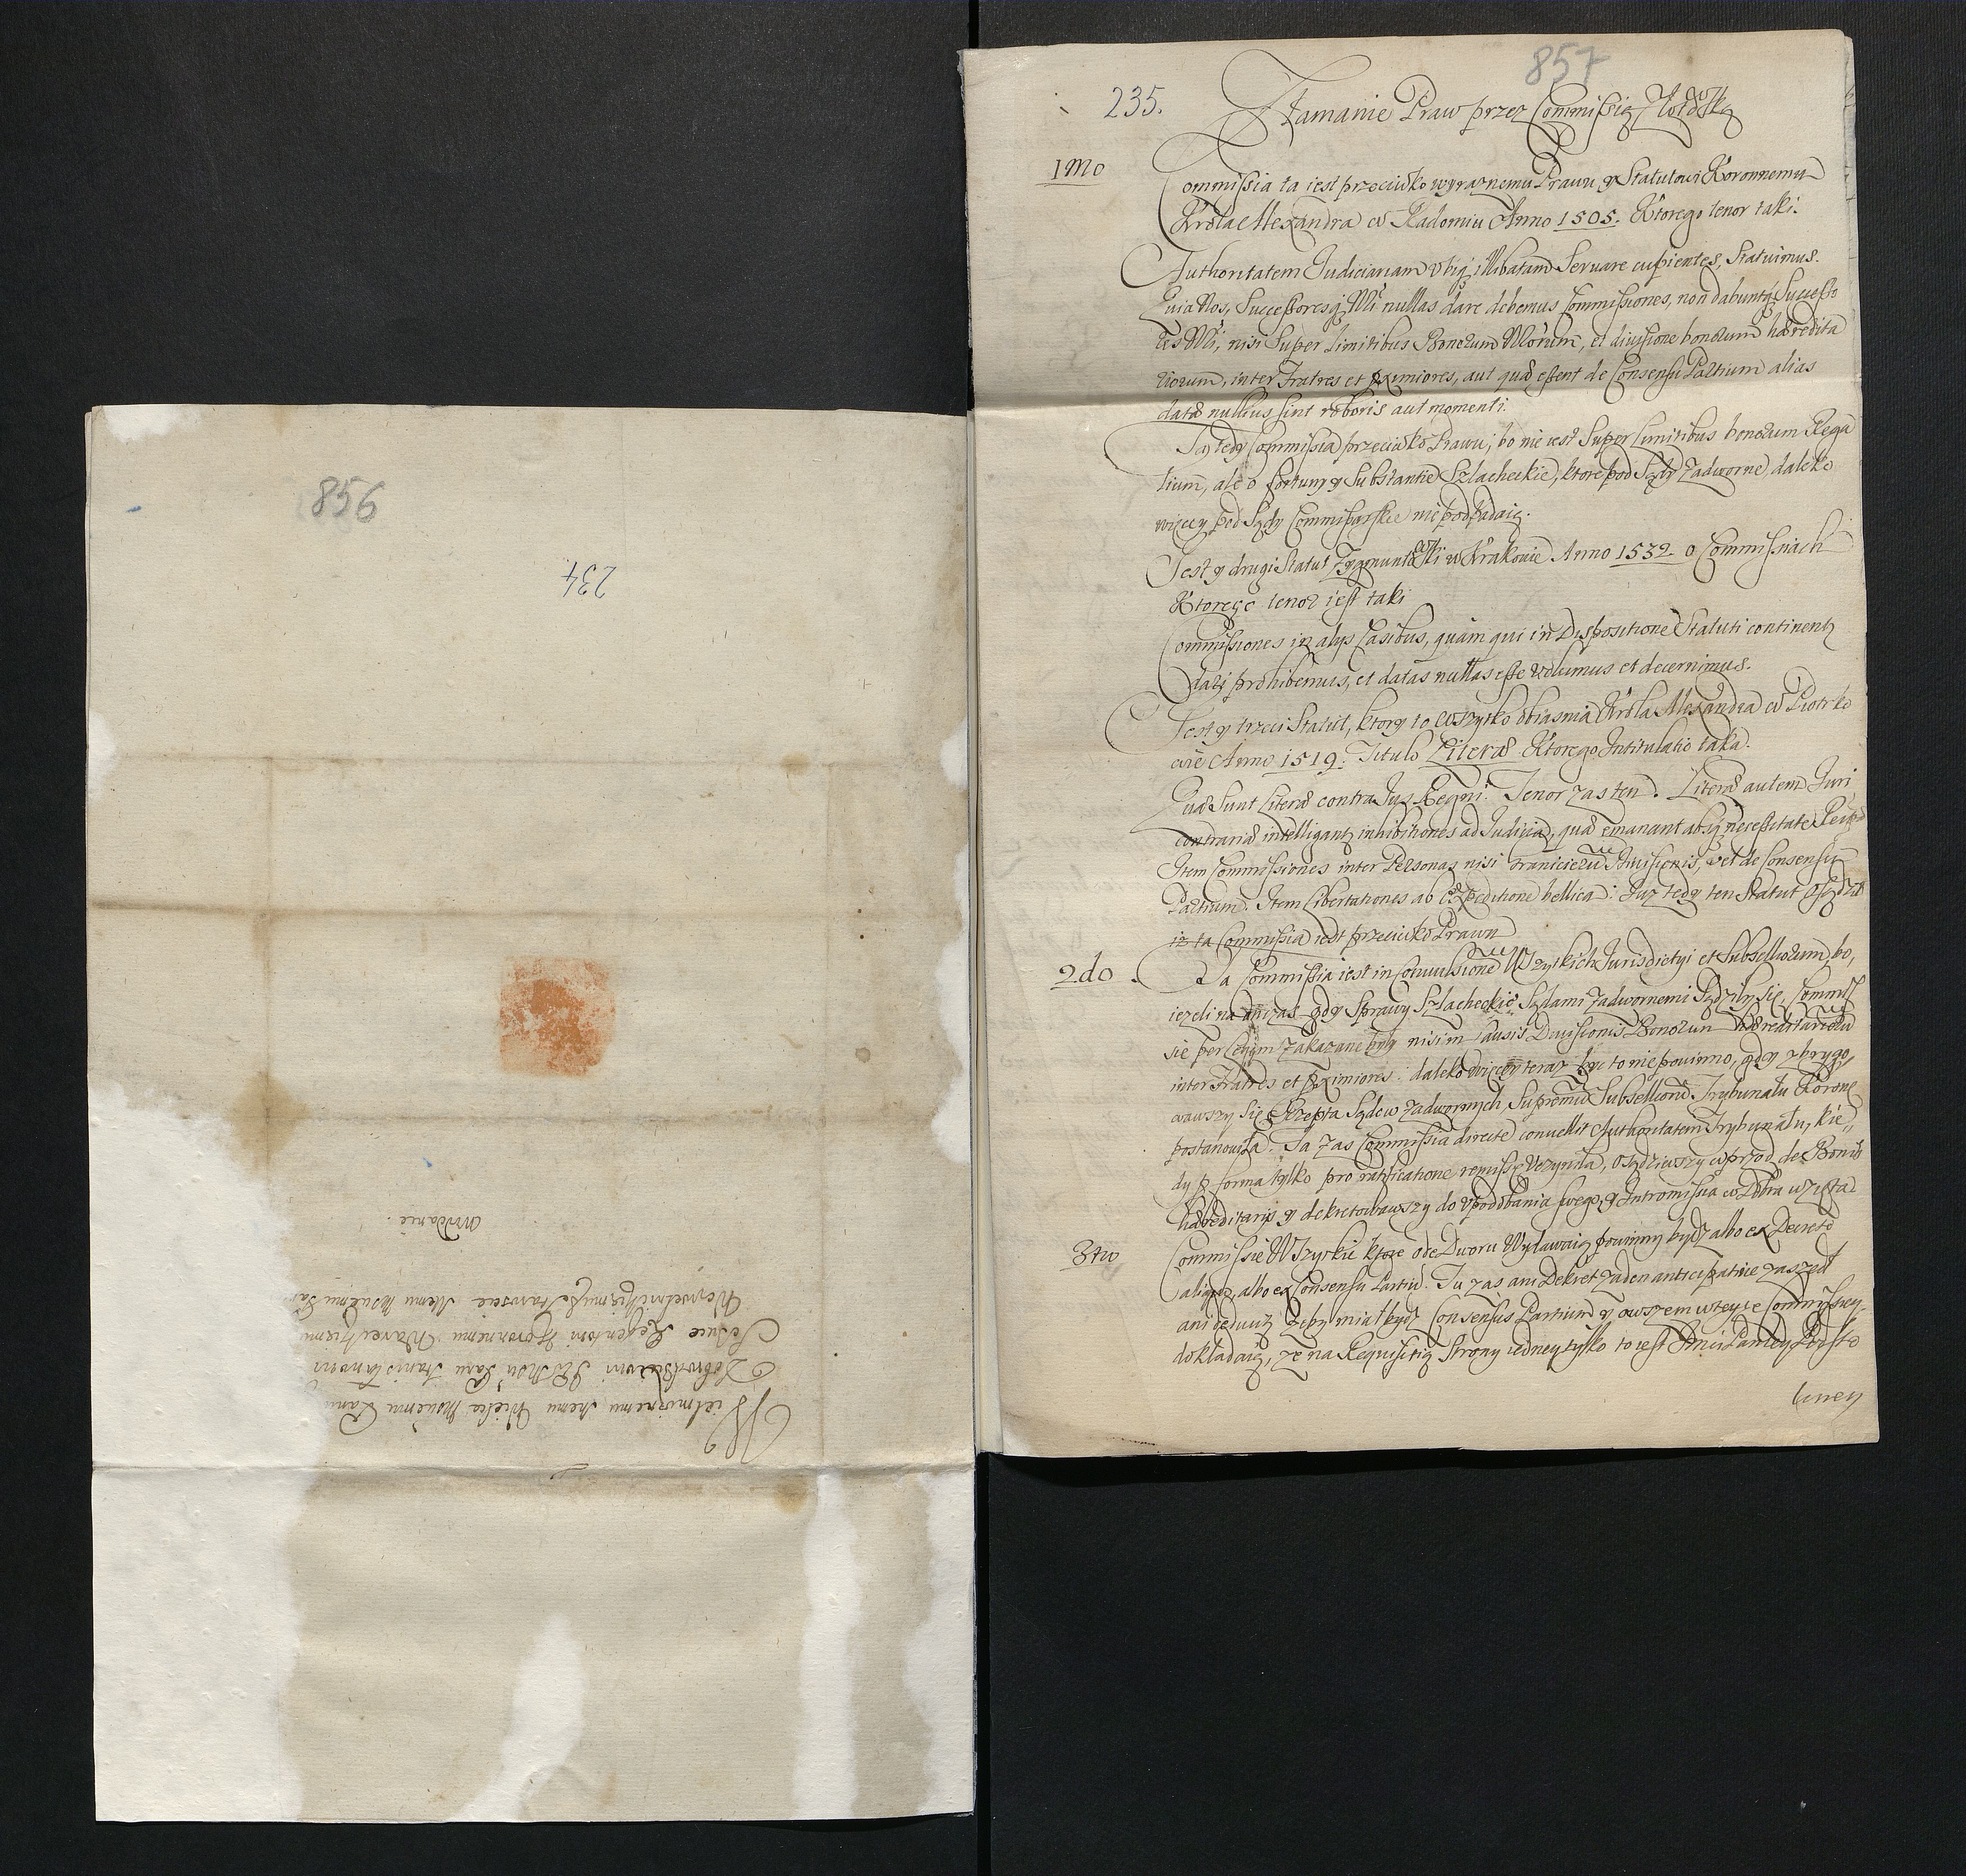 856
234
Wielmoznemu memu Wielce Mosciwemu Panu
Panu Stanisławowi
Regentowi Koronnemu
memu Mosciwemu
oddanie.
857
235.
Łamanie Praw przez Commissię
1mo
Commissia ta iest przeciwko wyraznemu Prawu y Statutowi Koronnemu
Krola Alexandra w Radomiu Anno 1505. Ktorego tenor taki.
Authoritatem Judiciariam vbiq illibatam Servare cupientes, Statuimus.
Quia Nos, Successoresq Nri nullas dare debemus Commissiones, non dabuntq Successo
res Nri, nisi Super Limitibus Bonorum Nrorum, et diuisione bonorum hæredita
riorum, inter Fratres et proximiores, aut quæ essent de Consensu Partium alias
datæ nullius sint roboris aut momenti.
Ta tedy Commissia przeciwko Prawu, bo nie iest Super Limitibus bonorum Rega
lium, ale o fortuny y Substantie Szlacheckie, ktore pod Sądy Zadworne daleko
więcey pod Sądy Commissarskie nie podpadaią.
Jest y drugi Statut Zygmuntowski w Krakowie Anno 1532. o Commissiach
Ktorego tenor iest taki
Commissiones in alijs Casibus, quàm qui in Dispositione Statuti continentur
dari prohibemus, et datas nullas esse volumus et decernimus.
Jest y trzeci Statut, ktory to wszytko obiasnia Krola Alexandra w Piotrko
wie Anno 1519. Titulo Literæ Ktorego Intitulatio taka.
Quæ Sunt Literæ contra Jus Regni. Tenor zas ten. Literæ autem Juri
contrariæ intelligantur inhibitiones ad Judicia, quæ emanant absq necessitate Reip
Item Commissiones inter Personas nisi Granicierum Diuisionis, vel de Consensu
Partium. Item Libertationes ab Expeditione bellica. Juz tedy ten Statut osądził
iz ta Commissia iest przeciwko Prawu
2do.
Ta Commissia iest in Conuulsionem Wszytkich Jurisdictyi et Subselliorum, bo,
iezeli na on czas gdy Sprawy Szlacheckie Sądami Zadwornemi Sądziły się, Commis
sie per Legem zakazane były nisi in Causis Diuisionis Bonorum Hæreditariorum
inter Fratres et proximiores: daleko więcey teraz być to nie powinno, gdy zbrygo
wawszy się Rzepta Sądow Zadwornych, Supremum Subsellium Trybunału Korone
postanowiła. Ta zas Commissia directè conuellit Authoritatem Trybunału, kie„
dy pro forma tylko pro ratificatione remissę vczyniła, osądziwszy wprzod de Bonis
hæreditarijs y dekretowawszy do vpodobania swego, y Intromissia w Dobra wzięta.
3tio
Commissie Wszytkie ktore ode Dworu Wydawaią powinny bydź albo ex Decreto
aliquo, albo ex Consensu Partium. Tu zas ani Dekret zaden anticipative zaszedł
ani deducit zeby miał bydź Consensus Partium y owszem w teyze Commissiey
dokładaią, ze na Requisitią Strony iedney tylko to iest Xmci Pauley Podsto
liney